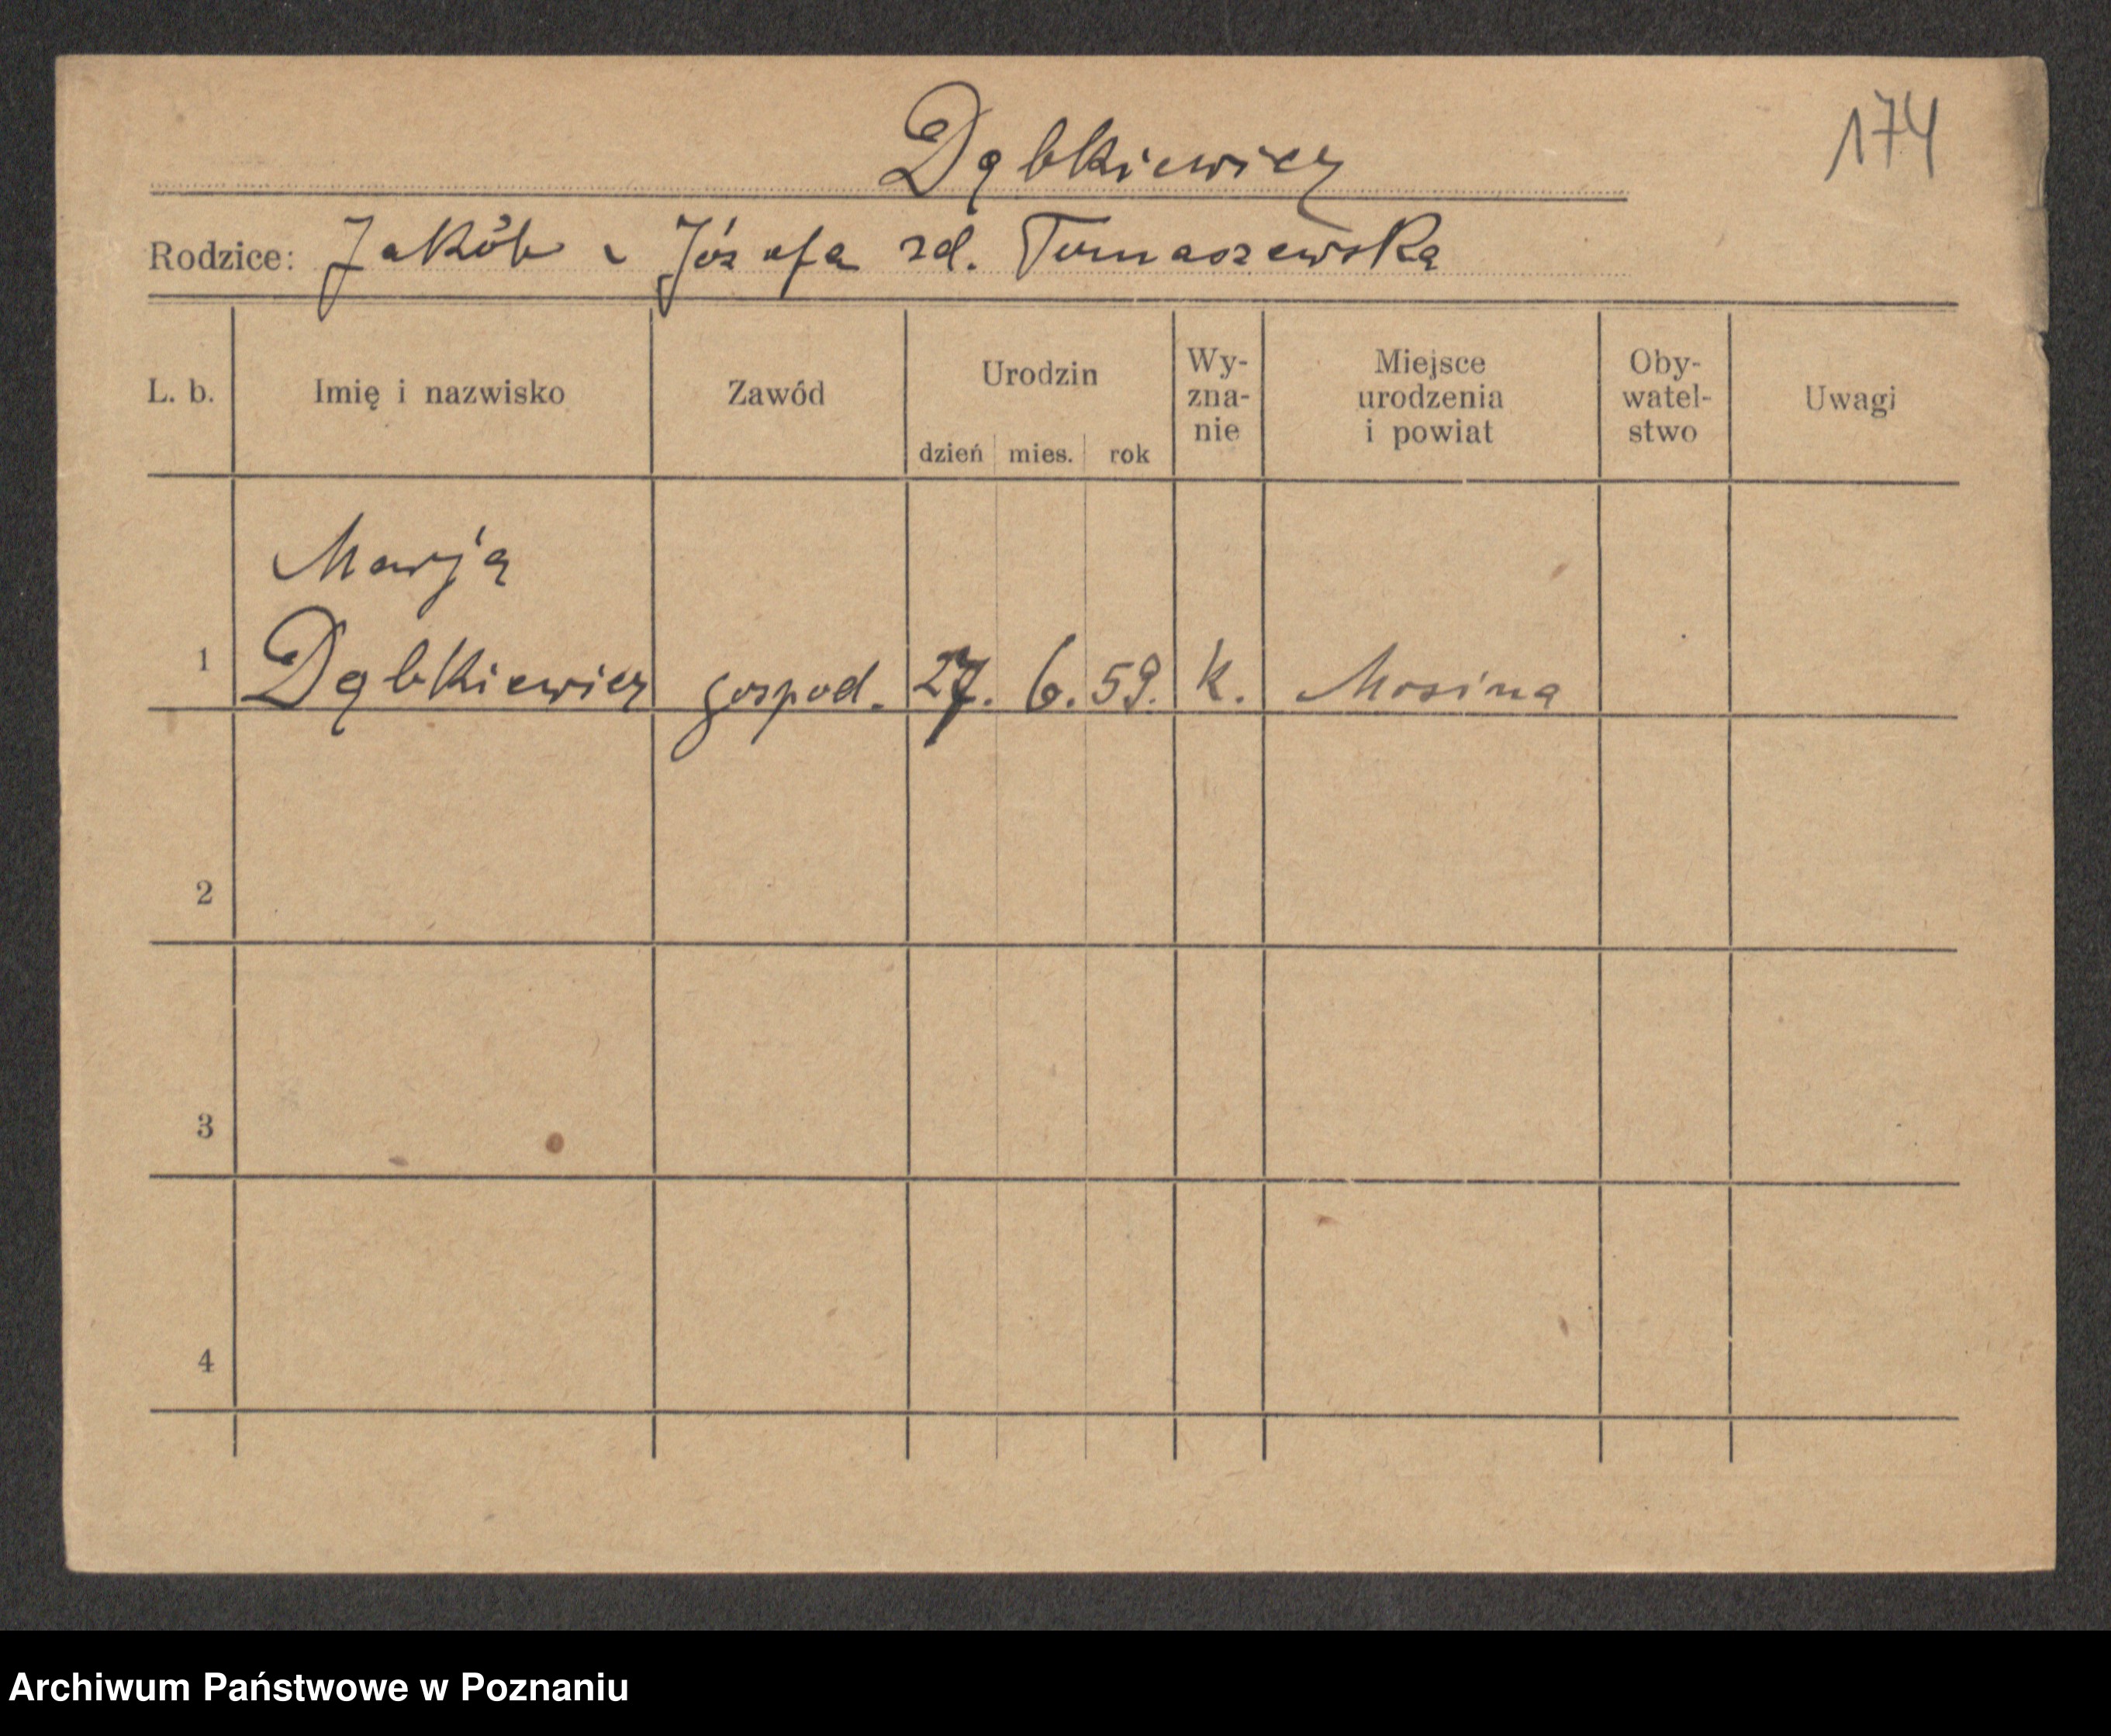 174
Dąbkiewicz
Rodzice: Jakób i Józefa zd. Tomaszewska
L. b. Imię i nazwisko Zawód Urodzin dzień mies. rok Wy-zna-nie Miejsce urodzenia i powiat Oby-watel-stwo Uwagi
Marja
1 Dąbkiewicz gospod. 27. 6. 59. k. Mosina
2
3
4
Archiwum Państwowe w Poznaniu